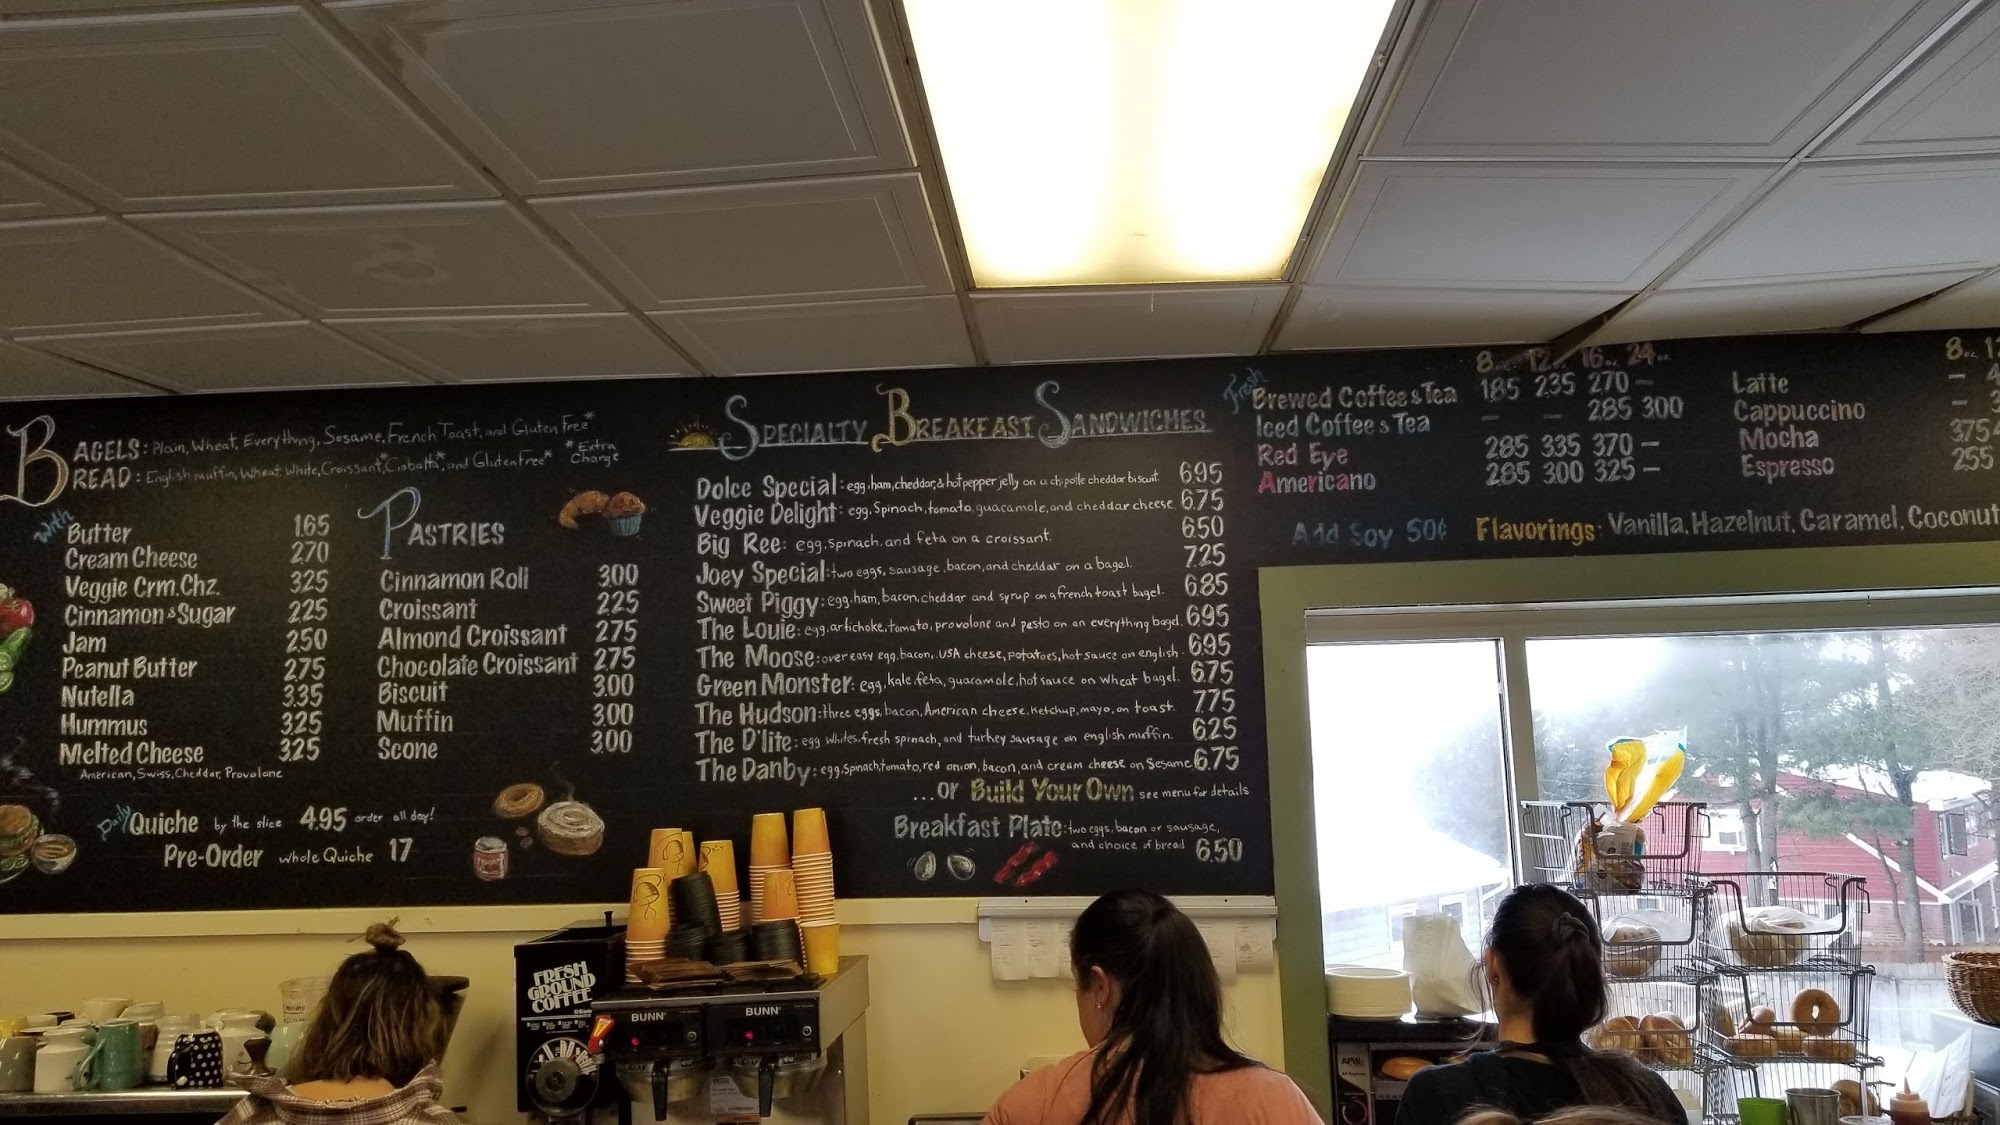 BAGELS: Plain, Wheat, Everything, Sesame, French Toast, and Gluten Free*
BREAD: English muffin, Wheat, White, Croissant*, Ciabatta*, and Gluten Free*
*Extra Charge
With
Butter 1.65
Cream Cheese 2.70
Veggie Crm. Chz. 3.25
Cinnamon & Sugar 2.25
Jam 2.50
Peanut Butter 2.75
Nutella 3.35
Hummus 3.25
Melted Cheese 3.25
American, Swiss, Cheddar, Provolone
Daily Quiche by the slice 4.95 order all day!
Pre-Order whole Quiche 17
PASTRIES
Cinnamon Roll 3.00
Croissant 2.25
Almond Croissant 2.75
Chocolate Croissant 2.75
Biscuit 3.00
Muffin 3.00
Scone 3.00
SPECIALTY BREAKFAST SANDWICHES
Dolce Special: egg, ham, cheddar, & hot pepper jelly on a chipotle cheddar biscuit. 6.95
Veggie Delight: egg, spinach, tomato, guacamole, and cheddar cheese. 6.75
Big Ree: egg, spinach, and feta on a croissant. 6.50
Joey Special: two eggs, sausage, bacon, and cheddar on a bagel. 7.25
Sweet Piggy: egg, ham, bacon, cheddar and syrup on a french toast bagel. 6.85
The Louie: egg, artichoke, tomato, provolone and pesto on an everything bagel. 6.95
The Moose: over easy egg, bacon, USA cheese, potatoes, hot sauce on english. 6.95
Green Monster: egg, kale, feta, guacamole, hot sauce on wheat bagel. 6.75
The Hudson: three eggs, bacon, American cheese, ketchup, mayo, on toast. 7.75
The D'lite: egg whites, fresh spinach, and turkey sausage on english muffin. 6.25
The Danby: egg, spinach, tomato, red onion, bacon, and cream cheese on Sesame 6.75
...or Build Your Own see menu for details
Breakfast Plate: two eggs, bacon or sausage,
and choice of bread 6.50
8 oz. 12 oz. 16 oz. 24 oz.
Fresh Brewed Coffee & Tea 185 235 270 -
Iced Coffee & Tea - - 285 300
Red Eye 285 335 370 -
Americano 285 300 325 -
Add Soy 50¢
8 oz. 12
Latte - 4
Cappuccino - 3
Mocha 375 4
Espresso 255
Flavorings: Vanilla, Hazelnut, Caramel, Coconut
FRESH
GROUND
COFFEE
BUNN
BUNN
APW